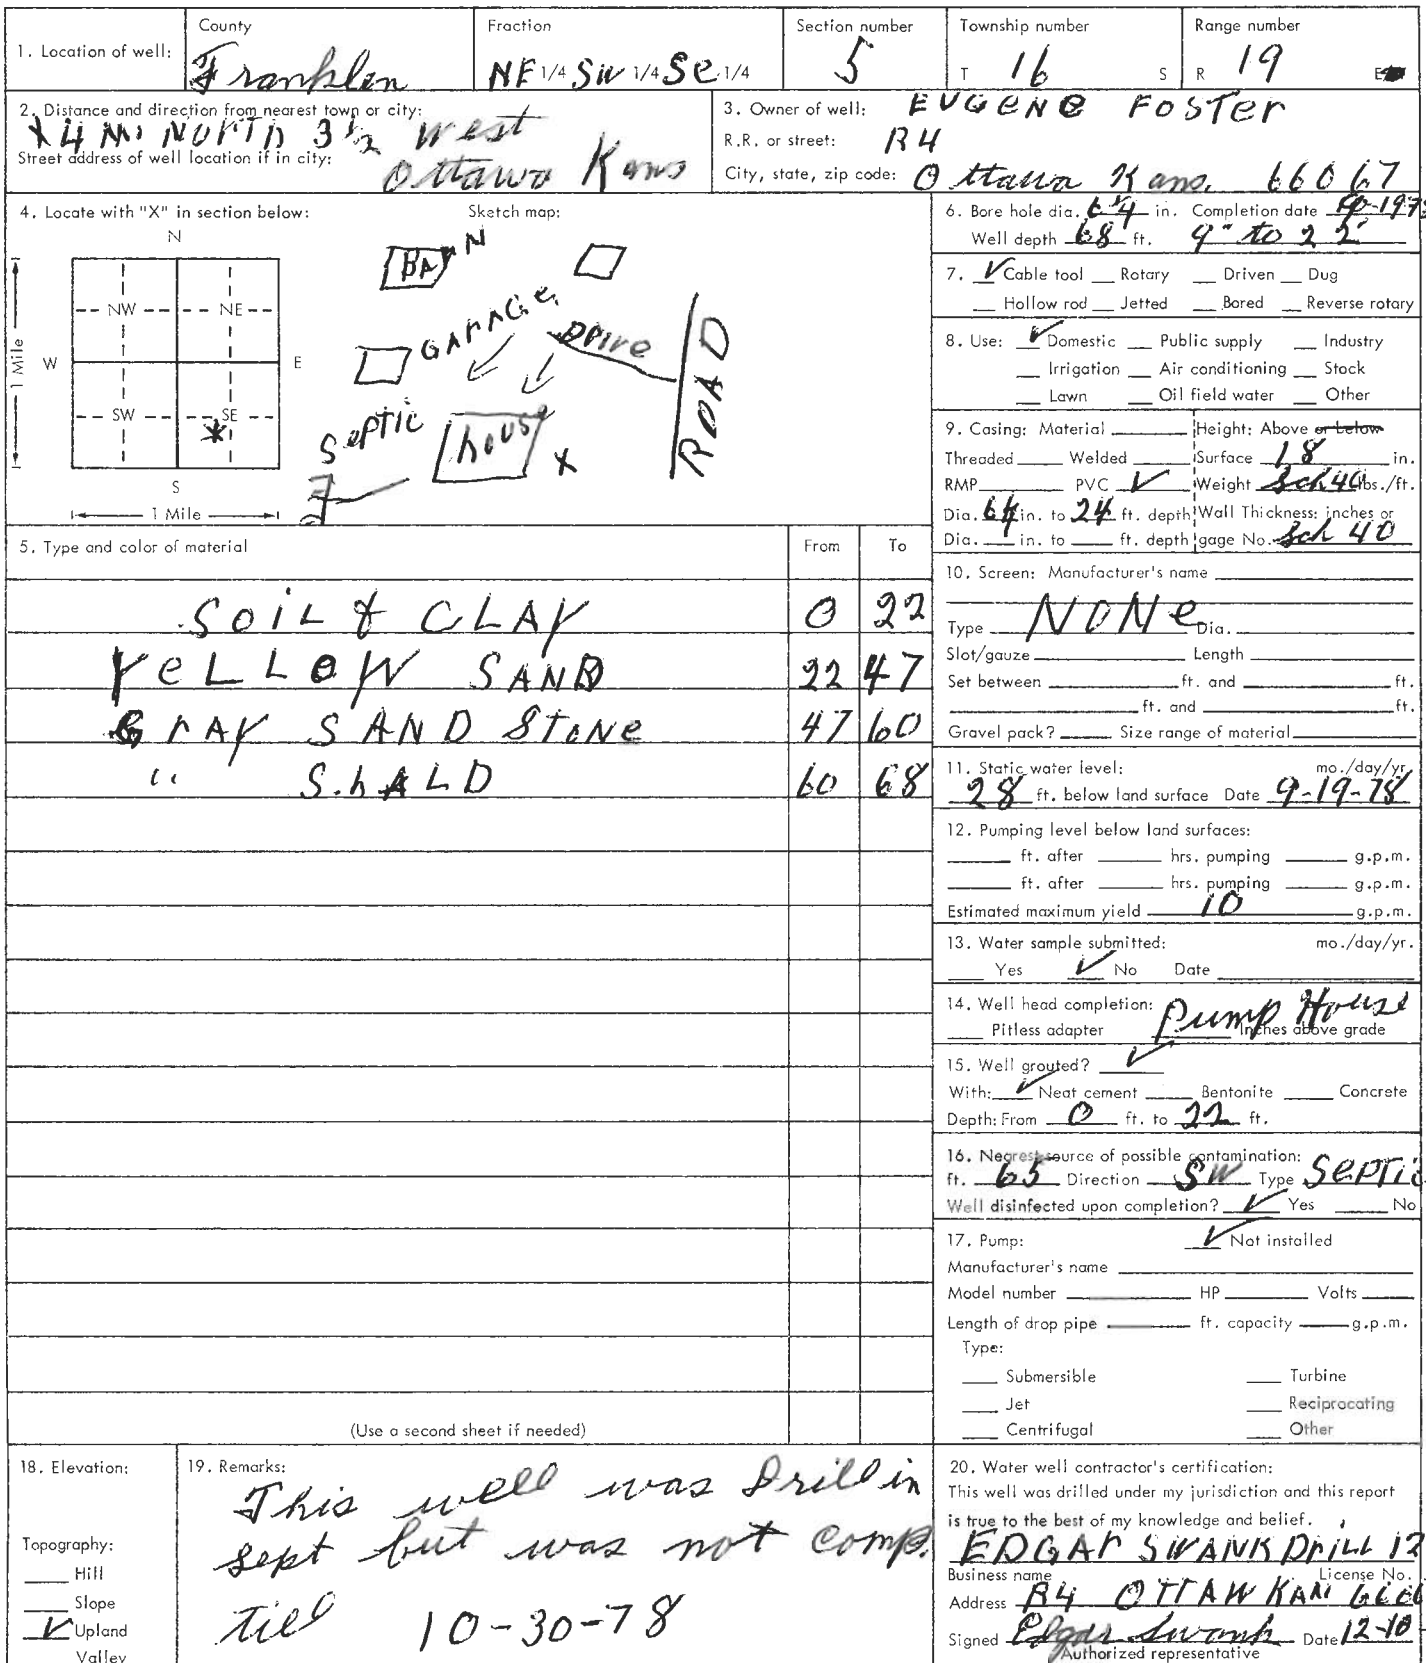 County Fraction Section number Township number Range number
1. Location of well: Franklen NE 1/4 SW 1/4 Se 1/4 5 T 16 S R 19
2. Distance and direction from nearest town or city:
X 4 Mi NOrTh 3 1/2 west
Street address of well location if in city: Ottawa Kans
3. Owner of well: EUGENe FOSTer
R.R. or street: R4
City, state, zip code: Ottawa Kans. 66067
4. Locate with "X" in section below: Sketch map:
N
NW NE
W E
SW SE
S
1 Mile
1 Mile
BArN
GArAGe
Drive
ROAD
SePTIC
house X
5. Type and color of material From To
SOIL & CLAY 0 22
YeLLOW SAND 22 47
GrAY SAND STONe 47 60
" S.hALD 60 68
(Use a second sheet if needed)
6. Bore hole dia. 6 1/4 in. Completion date
Well depth 68 ft. 9" to 22'
7. ✓ Cable tool Rotary Driven Dug
Hollow rod Jetted Bored Reverse rotary
8. Use: ✓ Domestic Public supply Industry
Irrigation Air conditioning Stock
Lawn Oil field water Other
9. Casing: Material Height: Above or below
Threaded Welded Surface 18 in.
RMP PVC ✓ Weight Sch 40 lbs./ft.
Dia. in. to 24 ft. depth Wall Thickness: inches or
Dia. in. to ft. depth gage No. Sch 40
10. Screen: Manufacturer's name
Type NONe Dia.
Slot/gauze Length
Set between ft. and ft.
ft. and ft.
Gravel pack? Size range of material
11. Static water level: mo./day/yr.
28 ft. below land surface Date 9-19-78
12. Pumping level below land surfaces:
ft. after hrs. pumping g.p.m.
ft. after hrs. pumping g.p.m.
Estimated maximum yield 10 g.p.m.
13. Water sample submitted: mo./day/yr.
Yes ✓ No Date
14. Well head completion: Pump House
Pitless adapter Inches above grade
15. Well grouted? ✓
With: ✓ Neat cement Bentonite Concrete
Depth: From 0 ft. to 22 ft.
16. Nearest source of possible contamination:
ft. 65 Direction SW Type SePTIC
Well disinfected upon completion? ✓ Yes No
17. Pump: ✓ Not installed
Manufacturer's name
Model number HP Volts
Length of drop pipe ft. capacity g.p.m.
Type:
Submersible Turbine
Jet Reciprocating
Centrifugal Other
18. Elevation:
Topography:
Hill
Slope
✓ Upland
Valley
19. Remarks:
This well was Drill in
sept but was not comp.
till 10-30-78
20. Water well contractor's certification:
This well was drilled under my jurisdiction and this report
is true to the best of my knowledge and belief.
EDGAr SWANK DrILL 12
Business name License No.
Address R4 OTTAW KAN
Signed Edgar Swank Date 12-10
Authorized representative